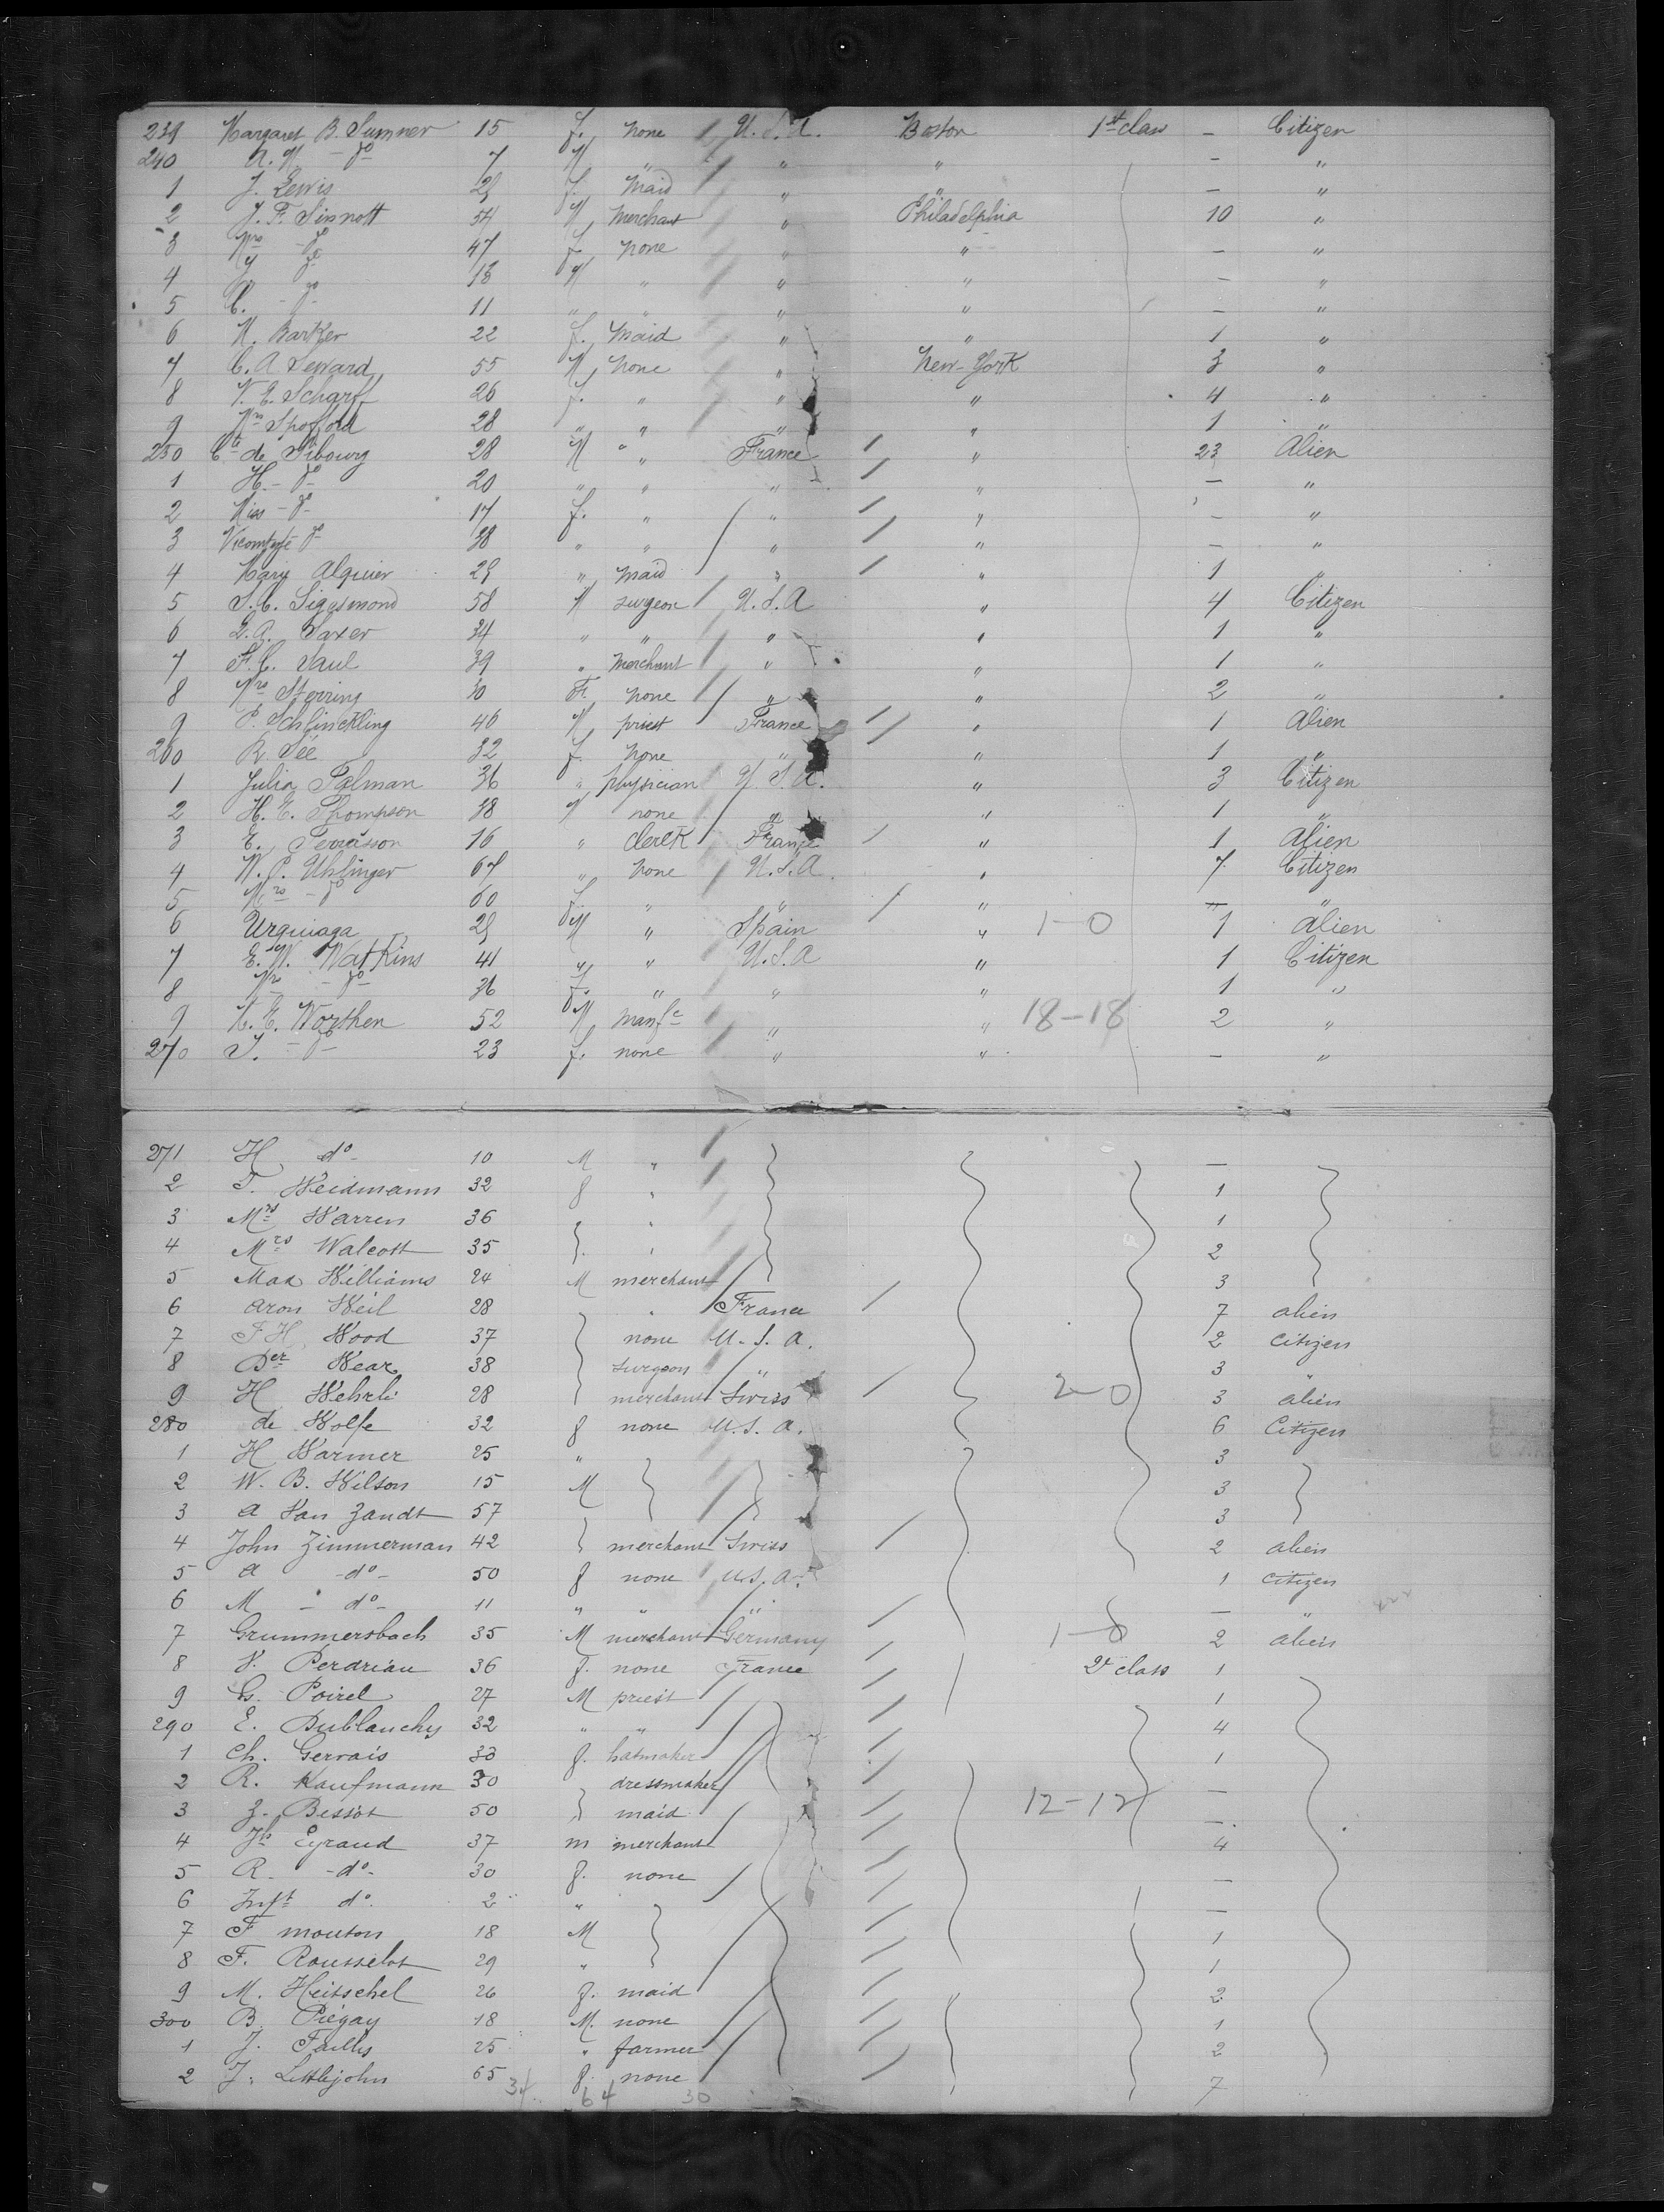 239 Margaret B. Sumner 15 f. none U.S.A. Boston 1st class — Citizen
240 A. M — do — 7 M " " " — "
1 J. Lewis 29 f. maid " " — "
2 J. F. Sinnott 54 M merchant " Philadelphia 10 "
3 Mrs — do 47 f. none " " — "
4 J. do 13 M " " " — "
5 C. — do — 11 " " " " — "
6 M. Barker 22 f. maid " " 1 "
7 C. A. Seward 55 M none " New-York 3 "
8 V. E. Scharff 26 f. " " " 4 "
9 Mrs Spofford 28 " " " " 1 "
250 Cte de Sibourg 28 M " France " 23 Alien
1 H. — do — 20 " " " " — "
2 Miss — do — 17 f. " " " — "
3 do 38 " " " " — "
4 Mary Alquier 29 " maid " " 1 "
5 S. C. Sigismond 58 M surgeon U.S.A " 4 Citizen
6 L. A. Saxer 34 " " " " 1 "
7 F. C. Saul 39 " merchant " " 1 "
8 Mrs Sterring 30 F. none " " 2 "
9 P. Schlinckling 46 M priest France " 1 Alien
260 R. Sée 32 f. none " " 1 "
1 Julia Talman 36 " physician U.S.A. " 3 Citizen
2 H. E. Thompson 18 M none " " 1 "
3 E. 16 " clerck France " 1 Alien
4 W. P. Uhlinger 67 " none U.S.A. " 7 Citizen
5 Mrs — do 60 f. " " " — "
6 Urquiaga 29 M " Spain " 1-0 1 Alien
7 E. W. Watkins 41 " " U.S.A " 1 Citizen
8 Mrs — do 36 f. " " " 1 "
9 H. E. Worthen 52 M manfr " " 18-18 2 "
270 S. — do — 23 f. none " " — "
271 H do — 10 M " —
2 T. Weidmann 32 f " 1
3 Mrs Warren 36 " 1
4 Mrs Walcott 35 " 2
5 Max Williams 24 M merchant 3
6 Aron Weil 28 " France 7 alien
7 F H Wood 37 none U.S.A. 2 citizen
8 Der Wear 38 surgeon " 3 "
9 H Wehrli 28 merchant Swiss 2-0 3 alien
280 de Wolfe 32 f none U.S.A. 6 Citizen
1 H Warmer 25 " 3
2 W. B. Wilson 15 M 3
3 A Van Zandt 57 3
4 John Zimmerman 42 merchant Swiss 2 alien
5 A — do — 50 f none U.S.A. 1 citizen
6 M — do — 11 " " " — "
7 Grummersbach 35 M merchant Germany 1-0 2 alien
8 V. Perdriau 36 f. none France 2d class 1
9 G. Poirel 27 M priest 1
290 E. Dublanchy 32 " " 4
1 Ch. Gervais 30 f. hatmaker 1
2 R. Kaufmann 30 dressmaker —
3 Z. Bessot 50 maid 12-12 —
4 Jh Eyraud 37 m merchant 4
5 R. — do — 30 f. none —
6 Inft do 2 " —
7 F mouton 18 M 1
8 F. Rousselot 29 " 1
9 M. Heitschel 26 f. maid 2
300 B. Piégay 18 M. none 1
1 J. 25 " farmer 2
2 J. Littlejohn 65 f. none 7
34 64 30